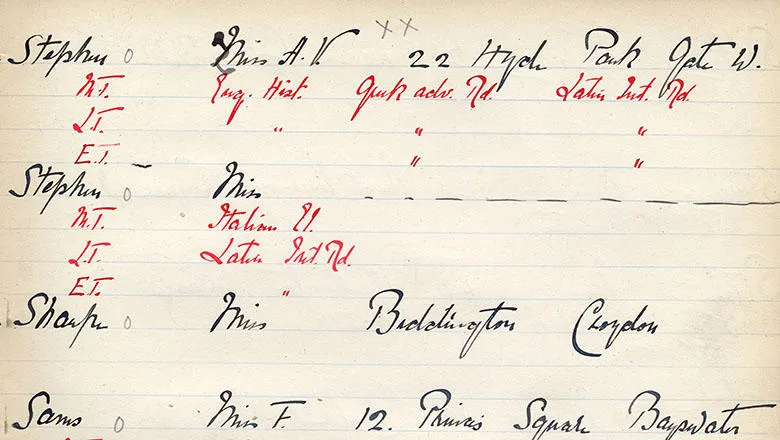 x x
Stephen o Miss A. V 22 Hyde Park Gate W.
M.T. Eng. Hist. Greek adv. Rd. Latin Int. Rd.
L.T. " " "
E.T. " "
Stephen o Miss — — — — — — — —
M.T. Italian El.
L.T. Latin Int. Rd.
E.T. "
Sharpe o Miss Beddington Croydon
Sams o Miss F. 12. Princes Square Bayswater